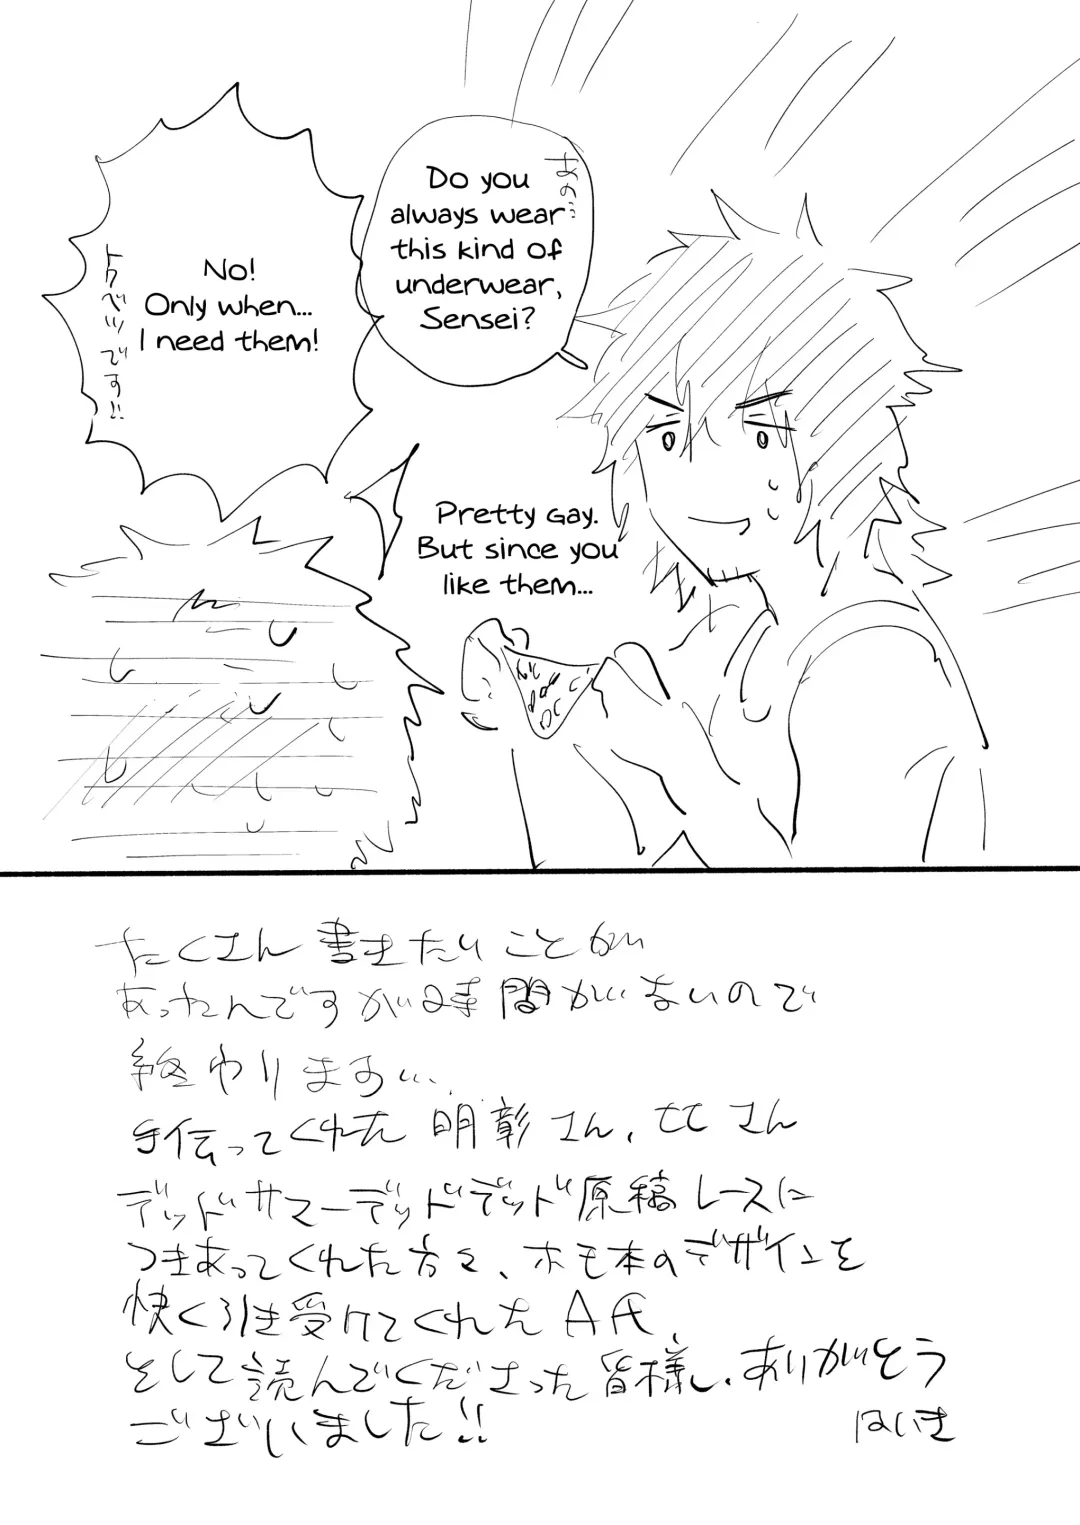 Do you
always wear
this kind of
underwear,
Sensei?
あの…
No!
Only when...
I need them!
トクベツです!!
Pretty Gay.
But since you
like them...
たくさん書きたいことが
あったんですが時間がないので
終わります…
手伝ってくれた明彰さん、ヒヒさん
デッドサマーデッドデッド原稿レースに
つきあってくれた方々、ホモ本のデザインを
快く引き受けてくれたA氏、
そして読んでくださった皆様、ありがとう
ございました!!
はいき